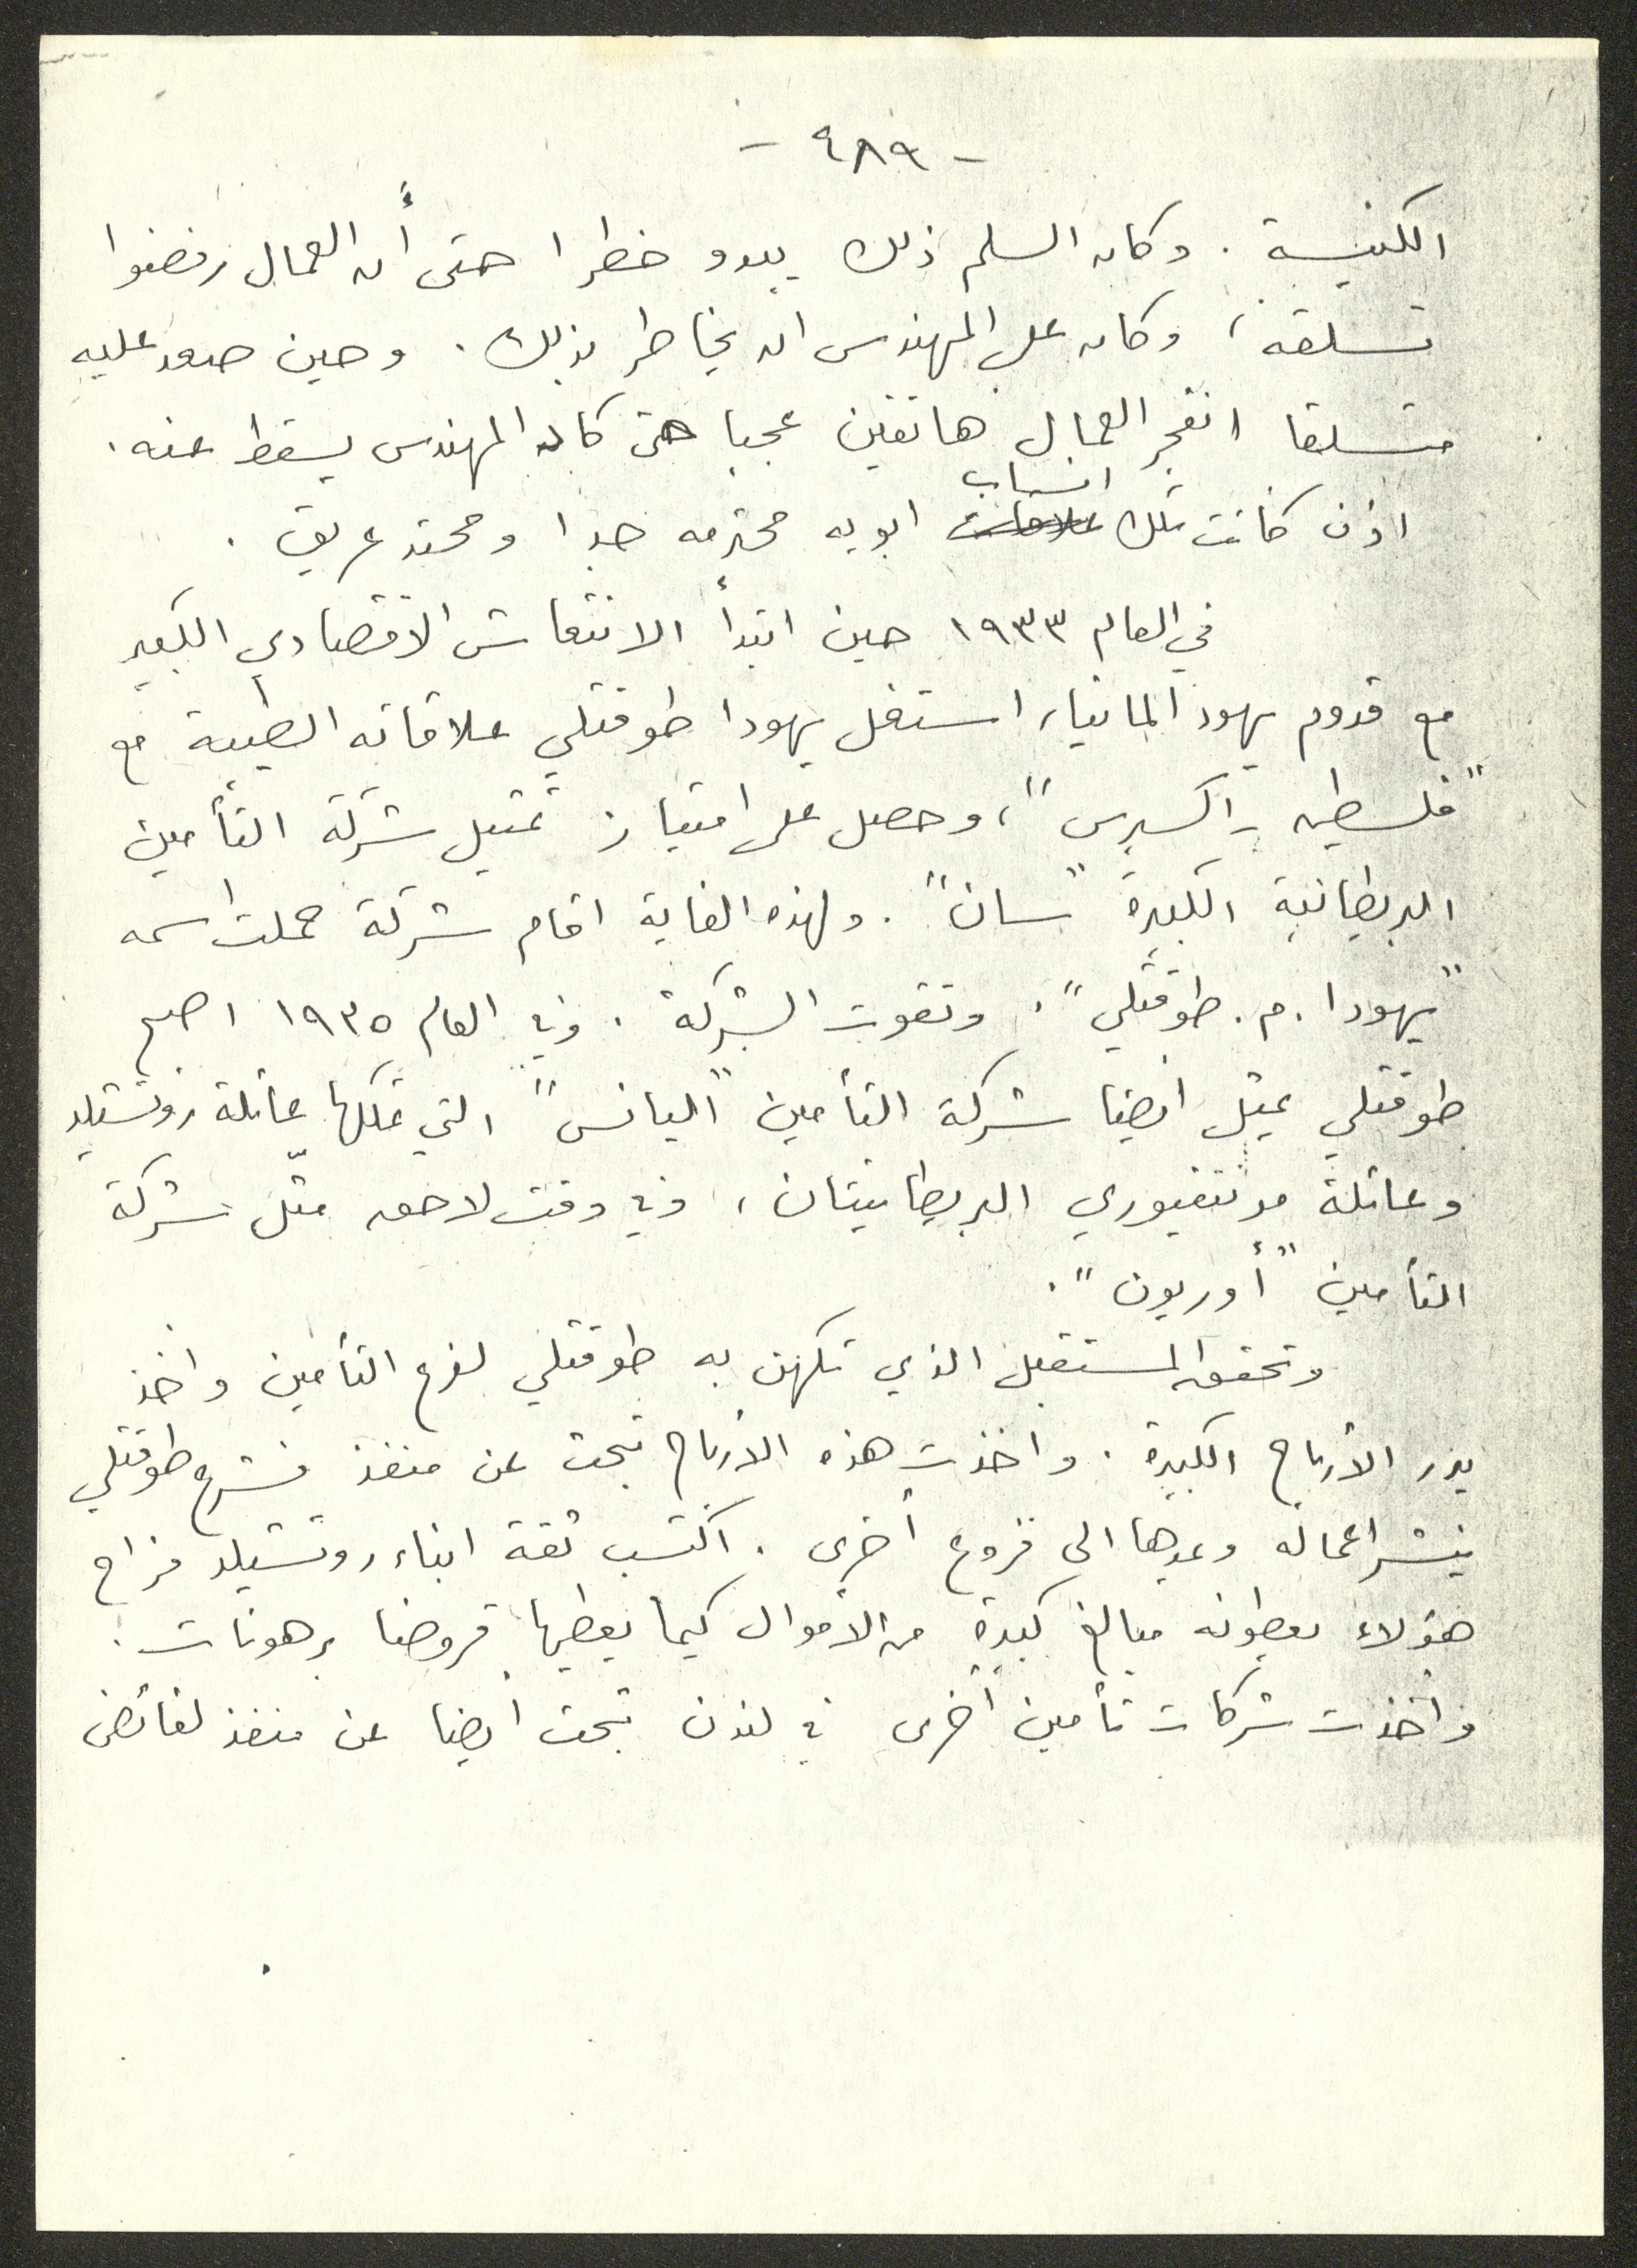 - ٤٨٩ -
الكنيسة . وكان السلم ذلك يبدو خطرا حتى أن العمال رفضوا
تسلقه ، وكان على المهندس ان يخاطر بذلك . وحين صعد عليه
متسلقا انفجر العمال هاتفين عجبا حتى كاد المهندس يسقط عنه .
انساب
اذن كانت تلك علاقات ابويه محترمه جدا ومحتد عريق .
في العام ١٩٣٣ حين ابتدأ الانتعاش الاقتصادي الكبير
مع قدوم يهود المانيا، استغل يهودا طوقتلي علاقاته الطيبة مع
"فلسطين - اكسبرس" ، وحصل على امتياز تمثيل شركة التأمين
البريطانية الكبيرة "سان" . ولهذه الغاية اقام شركة حملت اسمه
"يهودا . م . طوقتلي" . وتقوت الشركة . وفي العام ١٩٣٥ اصبح
طوقتلي يمثل ايضا شركة التأمين "اليانس" التي تملكها عائلة روتشيلد
وعائلة مونتفيوري البريطانيتان ، وفي وقت لاحق مثّل شركة
التأمين "أوريون" .
وتحقق المستقبل الذي تكهن به طوقتلي لفرع التأمين واخذ
يدر الأرباح الكبيرة . واخذت هذه الأرباح تبحث عن منفذ فشرع طوقتلي
ينشر اعماله ويمدها الى فروع أخرى . اكتسب ثقة ابناء روتشيلد فراح
هؤلاء يعطونه مبالغ كبيرة من الأموال كيما يعطيها قروضا برهونات .
واخذت شركات تأمين أخرى في لندن تبحث ايضا عن منفذ لفائض